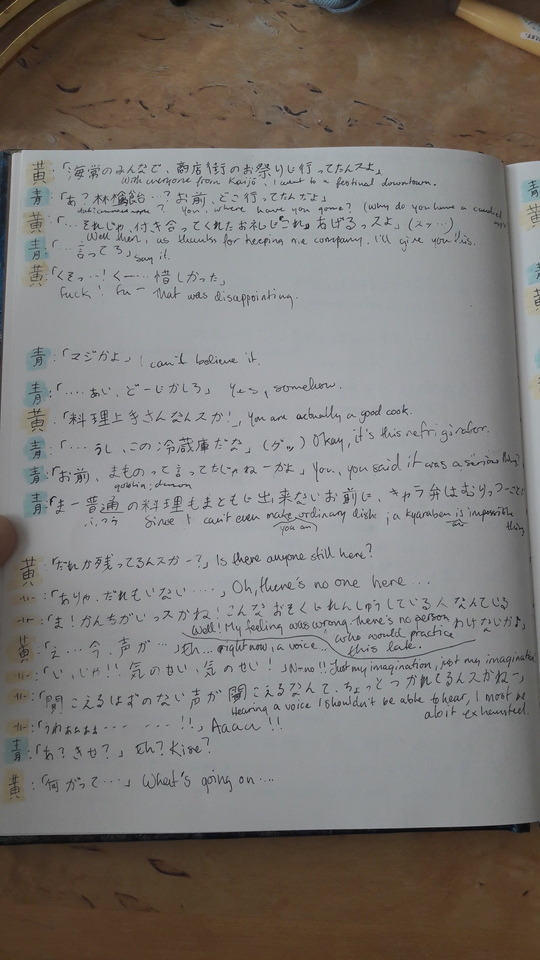 黄:「海常のみんなで、商店街のお祭りに行ってたんスよ」
With everyone from Kaijō, I went to a festival downtown.
青:「あ?林檎飴…?お前、どこ行ってたんだよ」
? You, where have you gone? (why do you have a candied
黄:「…それじゃ、付き合ってくれたお礼にこれあげるっスよ」(スッ…)
Well then, as thanks for keeping me company, I'll give you this.
青:「…言ってろ」say it.
黄:「くそっ…!くー…惜しかった」
Fuck! Fu- That was disappointing.
青:「マジかよ」I can't believe it.
青:「‥‥あい、どーじかしろ」Yes, somehow.
黄:「料理上手さんなんスか!」You are actually a good cook.
青:「‥‥うし、この冷蔵庫だな」(グッ) Okay, it's this refrigirator.
青:「お前、まものって言ってたじゃねーかよ」You, you said it was a serious
goblin; demon
青:「まー普通の料理もまともに出来ないお前に、キャラ弁はむりっつーことだ
ふつう Since I can't even make ordinary dish, a kyaraben is impossible
you are thing
黄:「だれか残ってるんスかー?」Is there anyone still here?
-〃-:「ありゃ、だれもいない‥‥」Oh, there's no one here...
-〃-:「ま!かんちがいっスかね!こんなおそくにれんしゅうしている人なんている
わけないかぁ」
Well! My feeling was wrong. There's no person who would practice this late.
黄:「え…今、声が…」Eh... right now, a voice..
-〃-:「い、いじゃ!!気のせい、気のせい!」N-no!! Just my imagination, just my imagination
-〃-:「聞こえるはずのない声が聞こえるなんて、ちょっとつかれてるんスかねー」
Hearing a voice I shouldn't be able to hear, I must be a bit exhausted.
-〃-:「うわぁぁぁぁ‥‥‥!!」Aaaa!!
青:「あ?きせ?」Eh? Kise?
黄:「何がって…」What's going on...